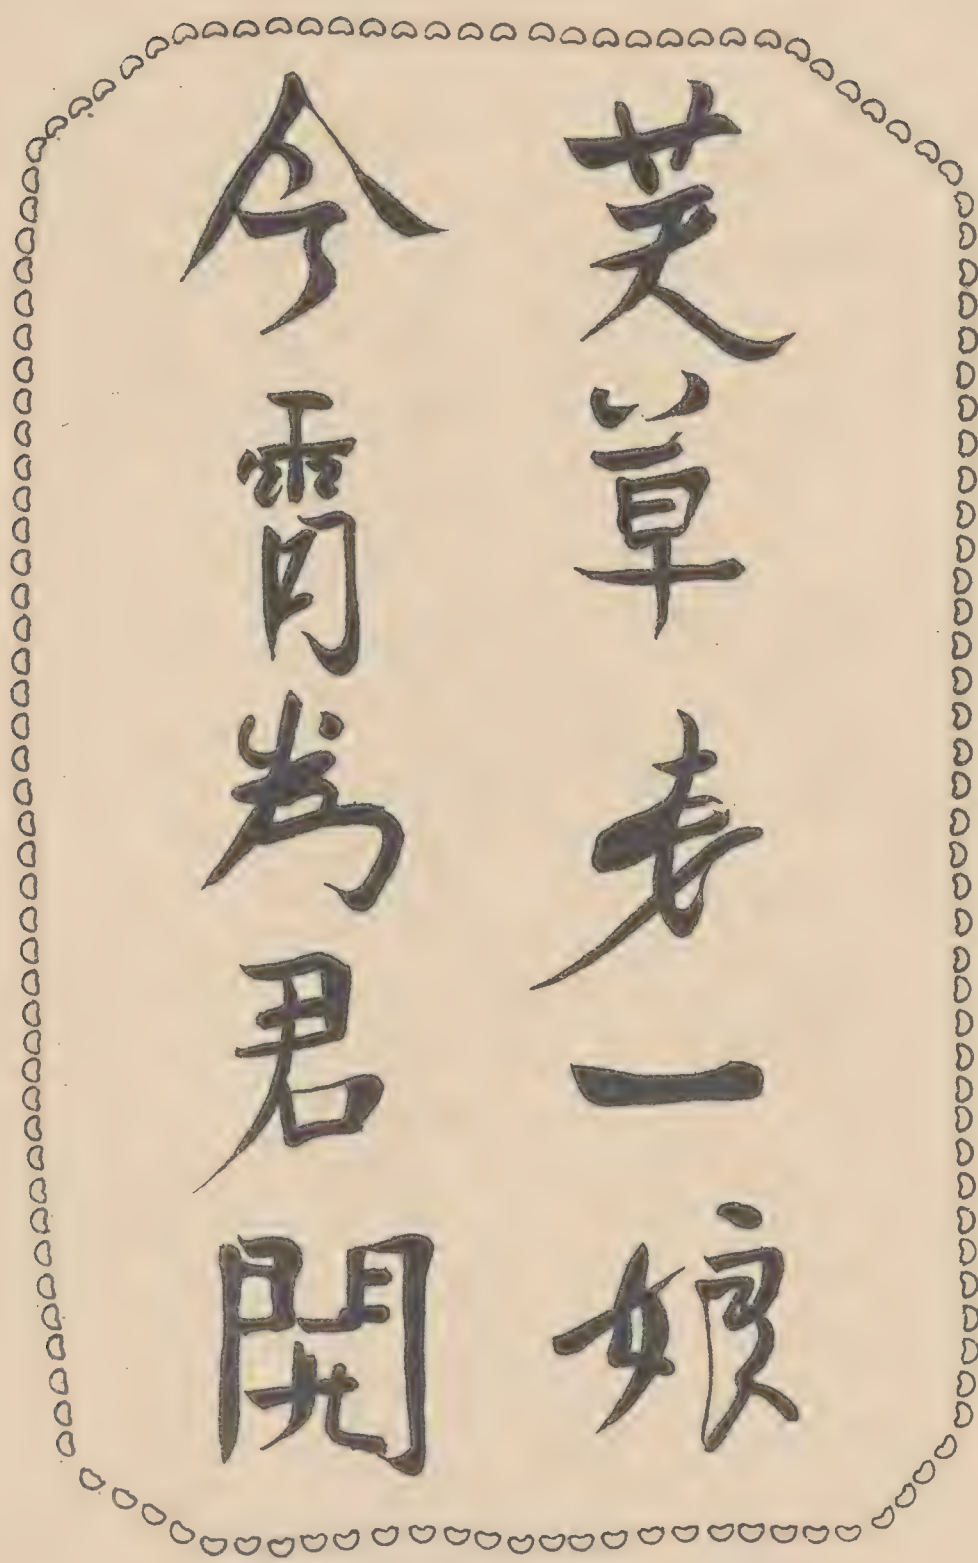 芝草老一娘
今霄為君開